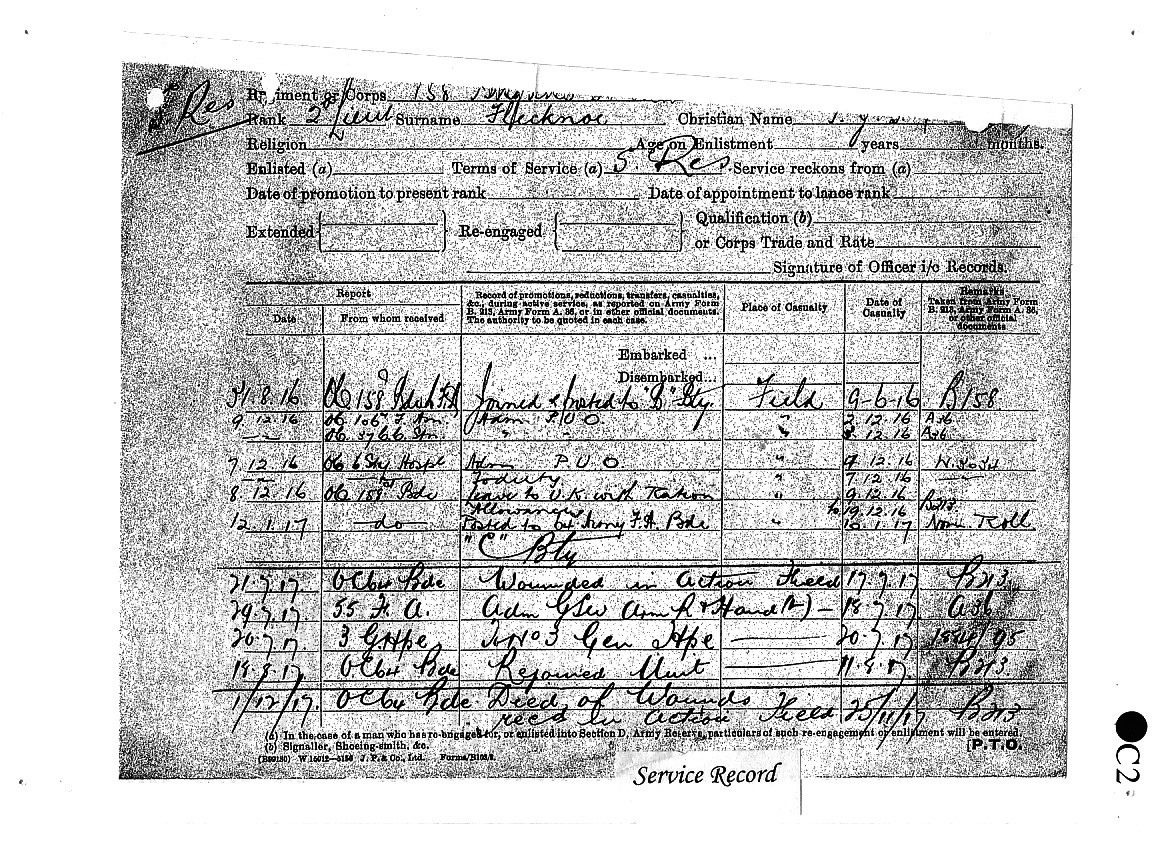 S Res
Regiment or Corps 158
Rank 2/Lieut Surname Flecknoe Christian Name
Religion Age on Enlistment years months.
Enlisted (a) Terms of Service (a) S. Res Service reckons from (a)
Date of promotion to present rank Date of appointment to lance rank
Extended Re-engaged Qualification (b)
or Corps Trade and Rate
Signature of Officer i/c Records.
Report Record of promotions, reductions, transfers, casualties, &c., during active service, as reported on Army Form B. 213, Army Form A. 36, or in other official documents. The authority to be quoted in each case. Place of Casualty Date of Casualty Remarks Taken from Army Form B. 213, Army Form A. 36, or other official documents
Date From whom received
Embarked ...
Disembarked...
31.8.16 OC 158 Joined & posted to "B" Bty Field 9-6-16 B158
9.12.16 OC F. Am. Adm P.U.O. " 2.12.16 A36
OC " " 3.12.16 A36
7.12.16 OC 6 Sty Hospl Adm P.U.O. " 4.12.16
To duty " 7.12.16
8.12.16 OC 158 Bde Leave to U.K. with Ration " 9.12.16 B213
Allowance to 19.12.16
12.1.17 do Posted to 64 Army F.A. Bde " 10.1.17 Nom Roll
"C" Bty
21.7.17 OC 64 Bde Wounded in Action Field 17.7.17 B213
29.7.17 55 F.A. Adm GSW Arm R & Hand 18.7.17 A36
20.7.17 3 G. Hpl No 3 Gen Hpl 20.7.17
18.8.17 OC 64 Bde Rejoined Unit 11.8.17 B213
1/12/17. OC 64 Bde Died of Wounds
recd in action Field 25/11/17 B213
(a) In the case of a man who has re-engaged for, or enlisted into Section D, Army Reserve, particulars of such re-engagement or enlistment will be entered.
(b) Signaller, Shoeing-smith, &c. [P.T.O.
J. P. & Co., Ltd.
Service Record
C2